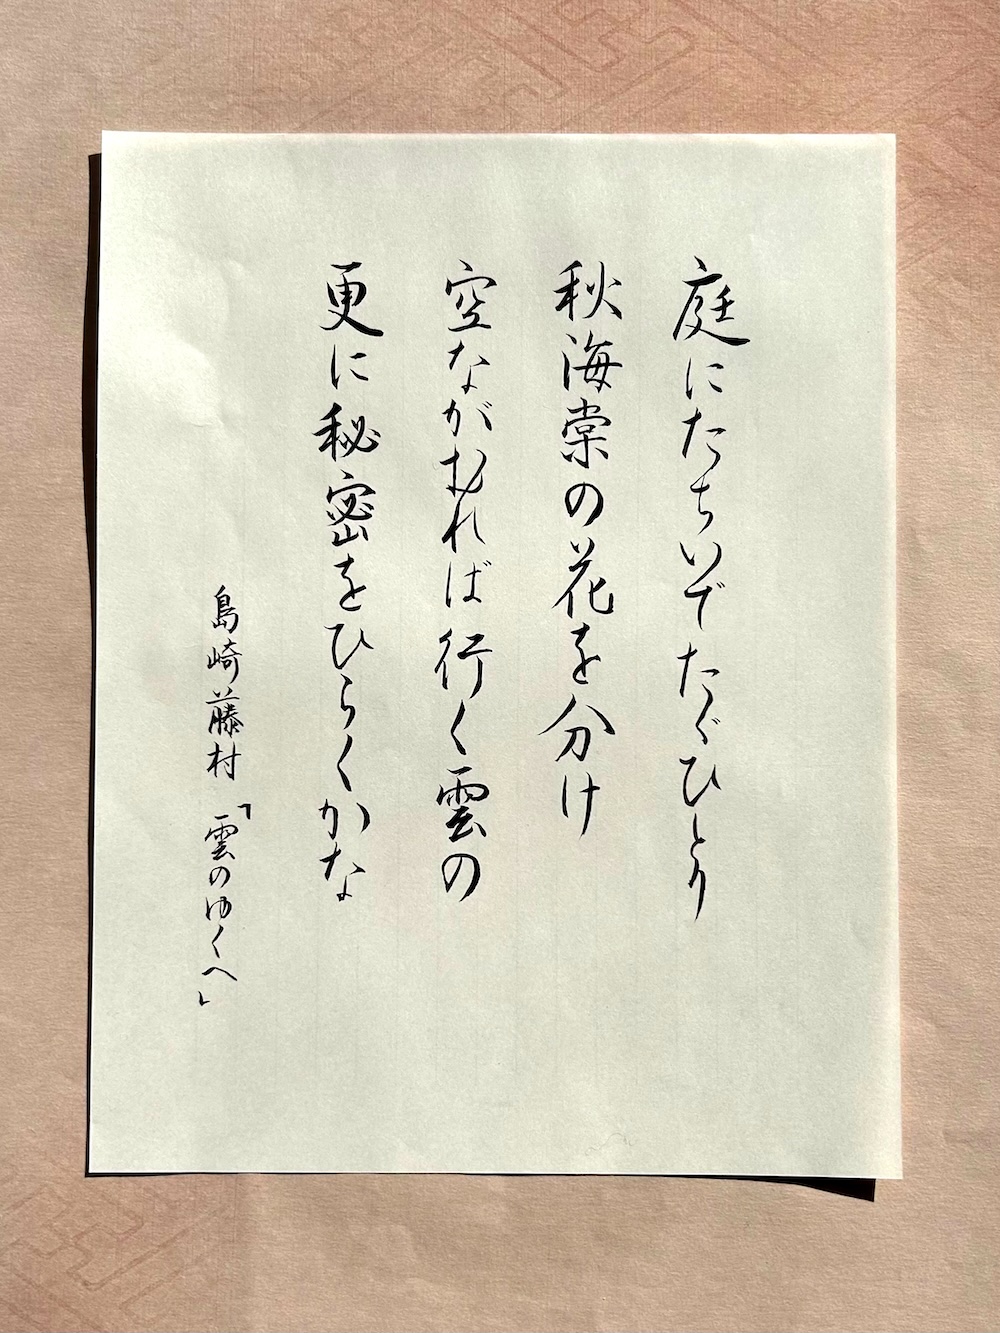 庭にたちいでたゞひとり
秋海棠の花を分け
空ながむれば行く雲の
更に秘密をひらくかな
島崎藤村「雲のゆくへ」